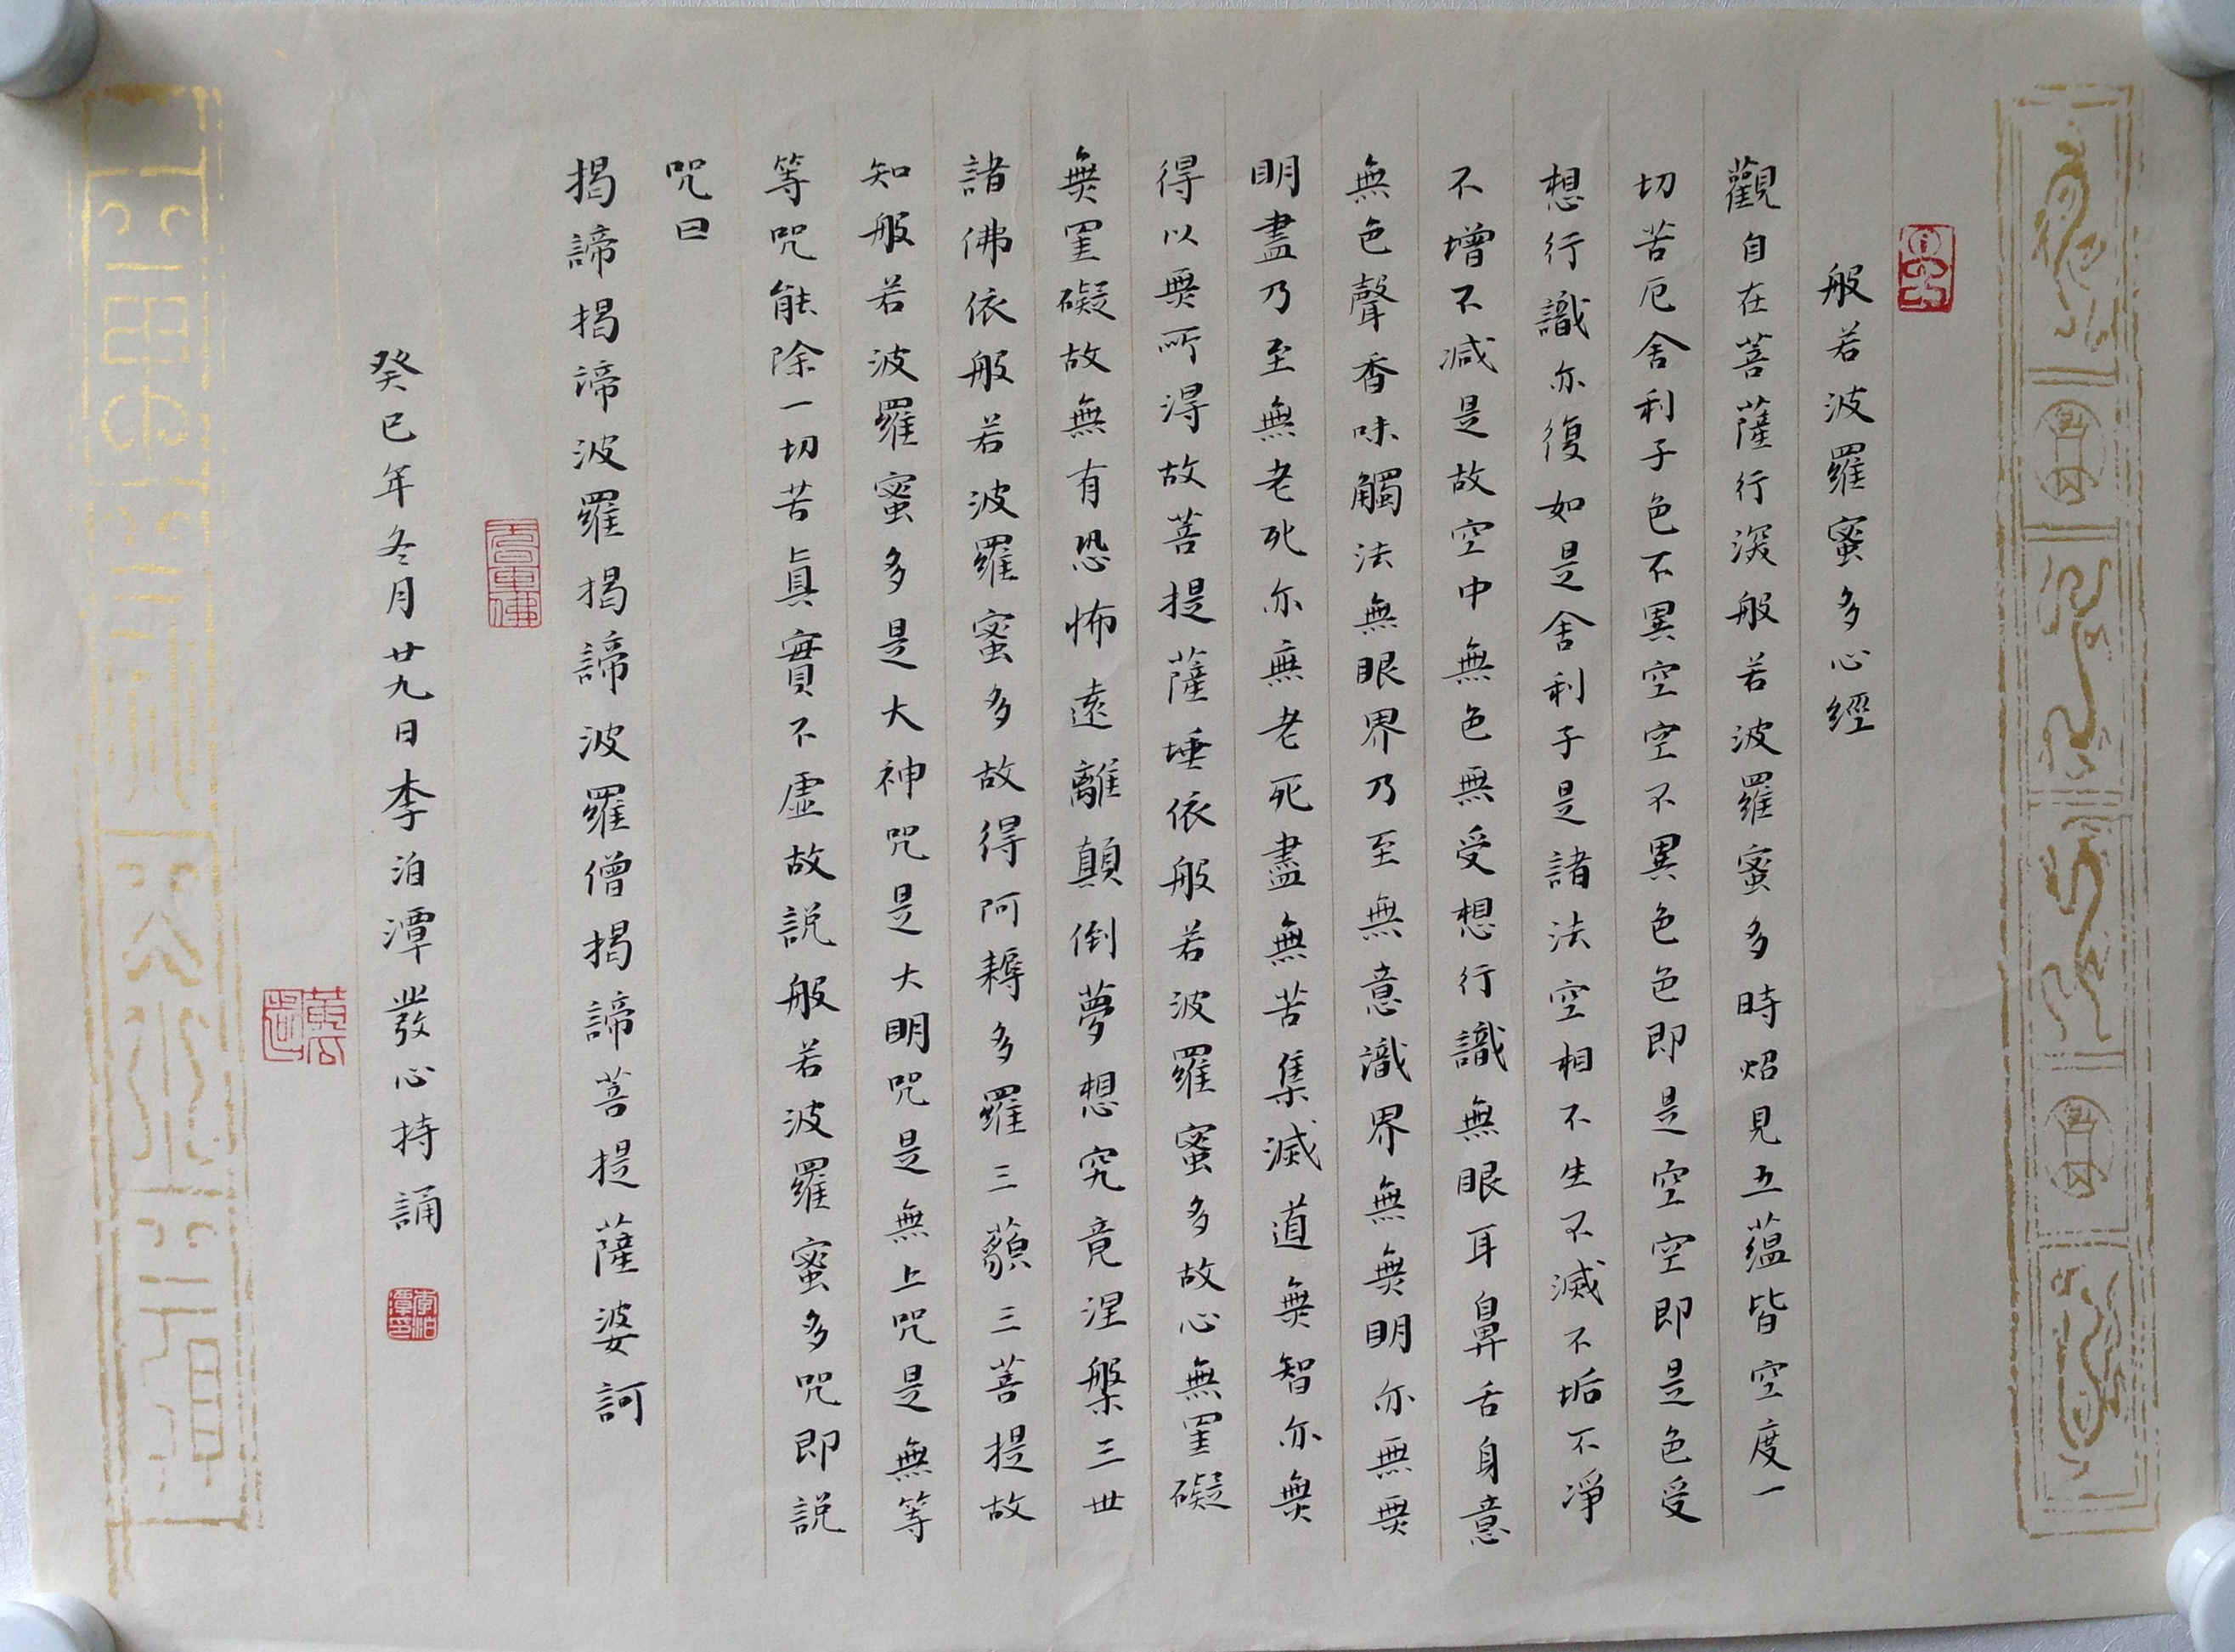 般若波羅蜜多心經
觀自在菩薩行深般若波羅蜜多時炤見五蘊皆空度一
切苦厄舍利子色不異空空不異色色即是空空即是色受
想行識亦復如是舍利子是諸法空相不生不滅不垢不淨
不增不減是故空中無色無受想行識無眼耳鼻舌身意
無色聲香味觸法無眼界乃至無意識界無無明亦無無
明盡乃至無老死亦無老死盡無苦集滅道無智亦無
得以無所得故菩提薩埵依般若波羅蜜多故心無罣礙
無罣礙故無有恐怖遠離顛倒夢想究竟涅槃三世
諸佛依般若波羅蜜多故得阿耨多羅三藐三菩提故
知般若波羅蜜多是大神咒是大明咒是無上咒是無等
等咒能除一切苦真實不虛故説般若波羅蜜多咒即説
咒曰
揭諦揭諦波羅揭諦波羅僧揭諦菩提薩婆訶
癸巳年冬月廿九日李泊潭發心持誦
李泊潭印